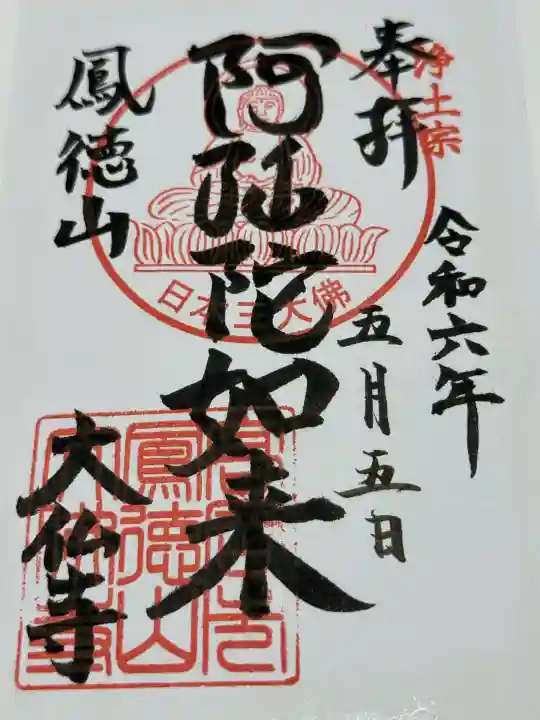 浄土宗
奉拝
令和六年
五月五日
阿弥陀如来
日本三大佛
鳳徳山
大仏寺
鳳徳山